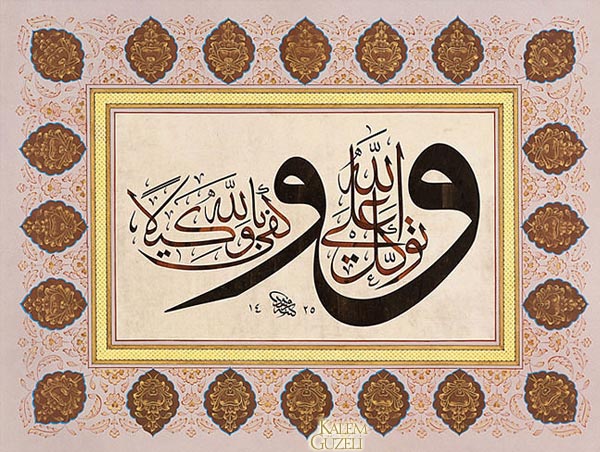 وتوكل على الله وكفى بالله وكيلا
١٤٢٥
KALEM
GÜZELİ